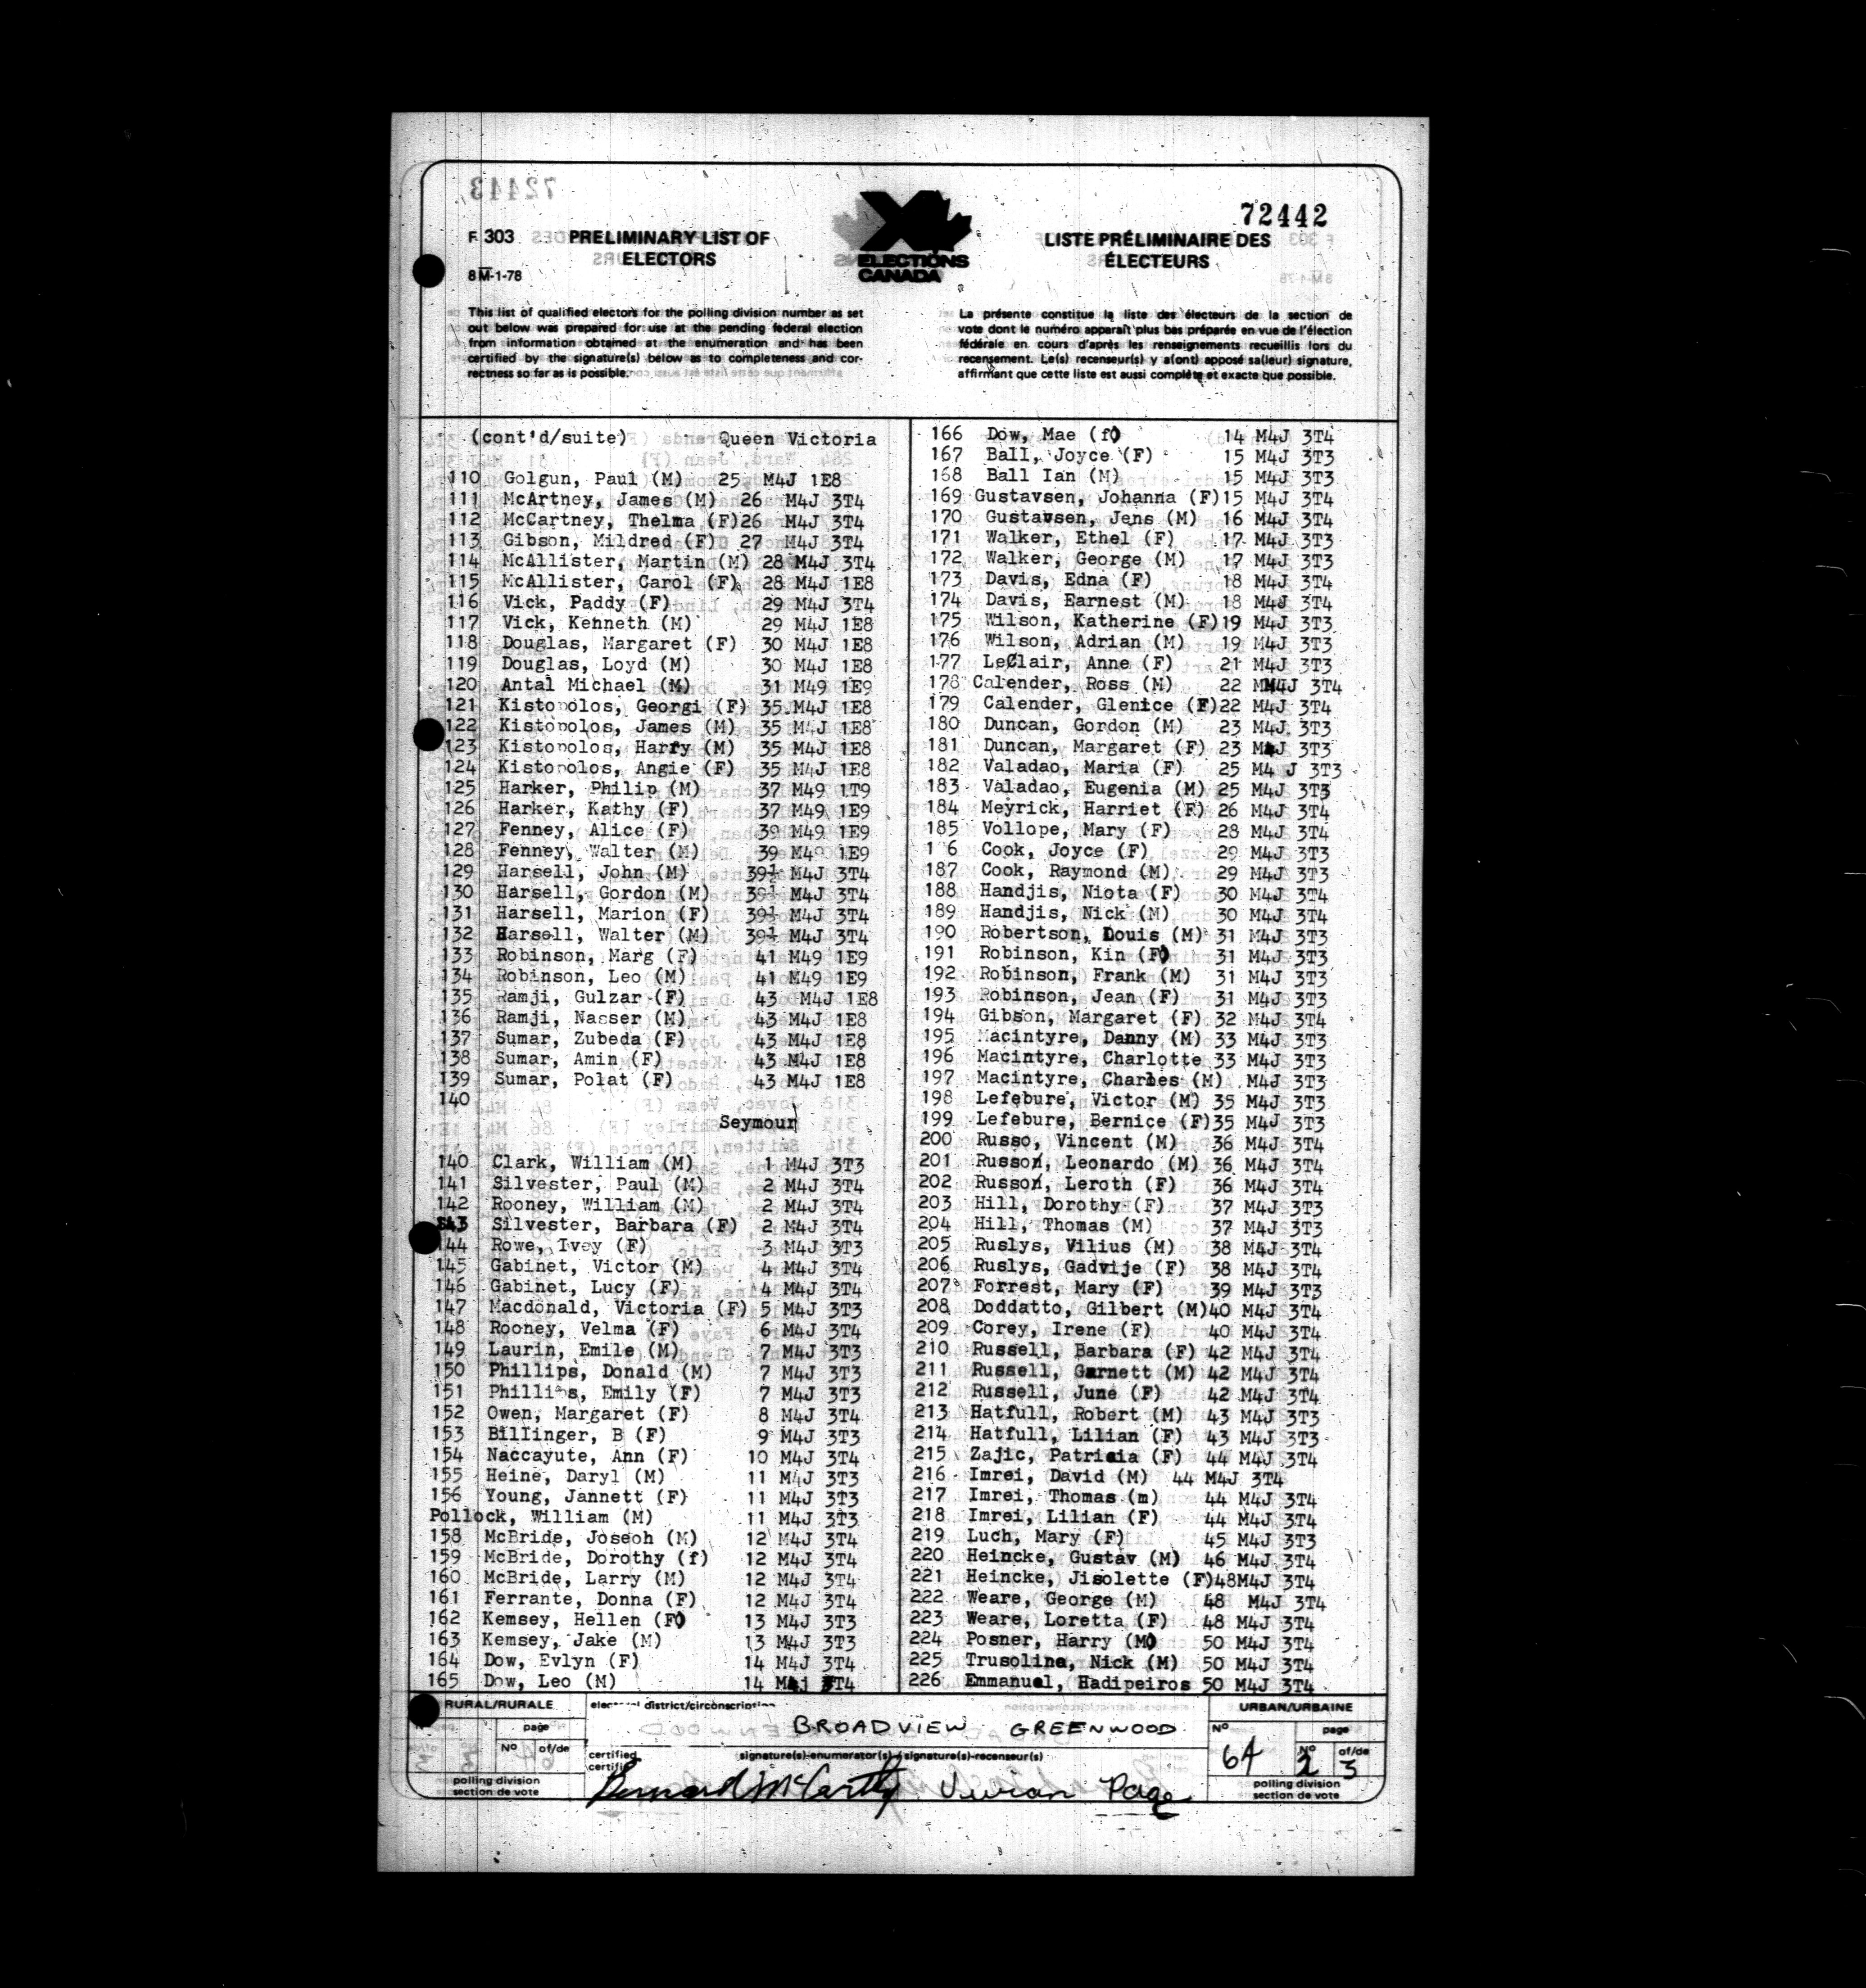 72442
F. 303 PRELIMINARY LIST OF
ELECTORS
8 M-1-78
ELECTIONS
CANADA
LISTE PRÉLIMINAIRE DES
ÉLECTEURS
This list of qualified electors for the polling division number as set
out below was prepared for use at the pending federal election
from information obtained at the enumeration and has been
certified by the signature(s) below as to completeness and cor-
rectness so far as is possible.
La présente constitue la liste des électeurs de la section de
vote dont le numéro apparaît plus bas préparée en vue de l'élection
fédérale en cours d'après les renseignements recueillis lors du
recensement. Le(s) recenseur(s) y a(ont) apposé sa(leur) signature,
affirmant que cette liste est aussi complète et exacte que possible.
(cont'd/suite) Queen Victoria
110 Golgun, Paul (M) 25 M4J 1E8
111 McArtney, James (M) 26 M4J 3T4
112 McCartney, Thelma (F)26 M4J 3T4
113 Gibson, Mildred (F) 27 M4J 3T4
114 McAllister, Martin (M) 28 M4J 3T4
115 McAllister, Carol (F) 28 M4J 1E8
116 Vick, Paddy (F) 29 M4J 3T4
117 Vick, Kenneth (M) 29 M4J 1E8
118 Douglas, Margaret (F) 30 M4J 1E8
119 Douglas, Loyd (M) 30 M4J 1E8
120 Antal Michael (M) 31 M49 1E9
121 Kistopolos, Georgi (F) 35 M4J 1E8
122 Kistopolos, James (M) 35 M4J 1E8
123 Kistopolos, Harry (M) 35 M4J 1E8
124 Kistopolos, Angie (F) 35 M4J 1E8
125 Harker, Philip (M) 37 M49 1T9
126 Harker, Kathy (F) 37 M49 1E9
127 Fenney, Alice (F) 39 M49 1E9
128 Fenney, Walter (M) 39 M49 1E9
129 Harsell, John (M) 39½ M4J 3T4
130 Harsell, Gordon (M) 39½ M4J 3T4
131 Harsell, Marion (F) 39½ M4J 3T4
132 Harsell, Walter (M) 39½ M4J 3T4
133 Robinson, Marg (F) 41 M49 1E9
134 Robinson, Leo (M) 41 M49 1E9
135 Ramji, Gulzar (F) 43 M4J 1E8
136 Ramji, Nasser (M) 43 M4J 1E8
137 Sumar, Zubeda (F) 43 M4J 1E8
138 Sumar, Amin (F) 43 M4J 1E8
139 Sumar, Polat (F) 43 M4J 1E8
140
Seymour
140 Clark, William (M) 1 M4J 3T3
141 Silvester, Paul (M) 2 M4J 3T4
142 Rooney, William (M) 2 M4J 3T4
143 Silvester, Barbara (F) 2 M4J 3T4
144 Rowe, Ivey (F) 3 M4J 3T3
145 Gabinet, Victor (M) 4 M4J 3T4
146 Gabinet, Lucy (F) 4 M4J 3T4
147 Macdonald, Victoria (F) 5 M4J 3T3
148 Rooney, Velma (F) 6 M4J 3T4
149 Laurin, Emile (M) 7 M4J 3T3
150 Phillips, Donald (M) 7 M4J 3T3
151 Phillips, Emily (F) 7 M4J 3T3
152 Owen, Margaret (F) 8 M4J 3T4
153 Billinger, B (F) 9 M4J 3T3
154 Naccayute, Ann (F) 10 M4J 3T4
155 Heine, Daryl (M) 11 M4J 3T3
156 Young, Jannett (F) 11 M4J 3T3
Pollock, William (M) 11 M4J 3T3
158 McBride, Joseoh (M) 12 M4J 3T4
159 McBride, Dorothy (f) 12 M4J 3T4
160 McBride, Larry (M) 12 M4J 3T4
161 Ferrante, Donna (F) 12 M4J 3T4
162 Kemsey, Hellen (F) 13 M4J 3T3
163 Kemsey, Jake (M) 13 M4J 3T3
164 Dow, Evlyn (F) 14 M4J 3T4
165 Dow, Leo (M) 14 M4j 3T4
166 Dow, Mae (f) 14 M4J 3T4
167 Ball, Joyce (F) 15 M4J 3T3
168 Ball Ian (M) 15 M4J 3T3
169 Gustavsen, Johanna (F)15 M4J 3T4
170 Gustavsen, Jens (M) 16 M4J 3T4
171 Walker, Ethel (F) 17 M4J 3T3
172 Walker, George (M) 17 M4J 3T3
173 Davis, Edna (F) 18 M4J 3T4
174 Davis, Earnest (M) 18 M4J 3T4
175 Wilson, Katherine (F)19 M4J 3T3
176 Wilson, Adrian (M) 19 M4J 3T3
177 LeClair, Anne (F) 21 M4J 3T3
178 Calender, Ross (M) 22 M4J 3T4
179 Calender, Glenice (F)22 M4J 3T4
180 Duncan, Gordon (M) 23 M4J 3T3
181 Duncan, Margaret (F) 23 M4J 3T3
182 Valadao, Maria (F) 25 M4 J 3T3
183 Valadao, Eugenia (M) 25 M4J 3T3
184 Meyrick, Harriet (F) 26 M4J 3T4
185 Vollope, Mary (F) 28 M4J 3T4
1 6 Cook, Joyce (F) 29 M4J 3T3
187 Cook, Raymond (M) 29 M4J 3T3
188 Handjis, Niota (F) 30 M4J 3T4
189 Handjis, Nick (M) 30 M4J 3T4
190 Robertson, Louis (M) 31 M4J 3T3
191 Robinson, Kin (F) 31 M4J 3T3
192 Robinson, Frank (M) 31 M4J 3T3
193 Robinson, Jean (F) 31 M4J 3T3
194 Gibson, Margaret (F) 32 M4J 3T4
195 Macintyre, Danny (M) 33 M4J 3T3
196 Macintyre, Charlotte 33 M4J 3T3
197 Macintyre, Charles (M) M4J 3T3
198 Lefebure, Victor (M) 35 M4J 3T3
199 Lefebure, Bernice (F)35 M4J 3T3
200 Russo, Vincent (M) 36 M4J 3T4
201 Russo, Leonardo (M) 36 M4J 3T4
202 Russo, Leroth (F) 36 M4J 3T4
203 Hill, Dorothy (F) 37 M4J 3T3
204 Hill, Thomas (M) 37 M4J 3T3
205 Ruslys, Vilius (M) 38 M4J 3T4
206 Ruslys, Gadvije (F) 38 M4J 3T4
207 Forrest, Mary (F) 39 M4J 3T3
208 Doddatto, Gilbert (M)40 M4J 3T4
209 Corey, Irene (F) 40 M4J 3T4
210 Russell, Barbara (F) 42 M4J 3T4
211 Russell, Garnett (M) 42 M4J 3T4
212 Russell, June (F) 42 M4J 3T4
213 Hatfull, Robert (M) 43 M4J 3T3
214 Hatfull, Lilian (F) 43 M4J 3T3
215 Zajic, Patricia (F) 44 M4J 3T4
216 Imrei, David (M) 44 M4J 3T4
217 Imrei, Thomas (m) 44 M4J 3T4
218 Imrei, Lilian (F) 44 M4J 3T4
219 Luch, Mary (F) 45 M4J 3T3
220 Heincke, Gustav (M) 46 M4J 3T4
221 Heincke, Jisolette (F)48M4J 3T4
222 Weare, George (M) 48 M4J 3T4
223 Weare, Loretta (F) 48 M4J 3T4
224 Posner, Harry (M) 50 M4J 3T4
225 Trusoline, Nick (M) 50 M4J 3T4
226 Emmanuel, Hadipeiros 50 M4J 3T4
RURAL/RURALE
page
Nº of/de
polling division
section de vote
district/circonscription
BROADVIEW GREENWOOD
certified
signature(s)-enumerator(s) / signature(s)-recenseur(s)
Bernard McCarthy Vivian Page
URBAN/URBAINE
Nº page
64 Nº 2 of/de 3
polling division
section de vote